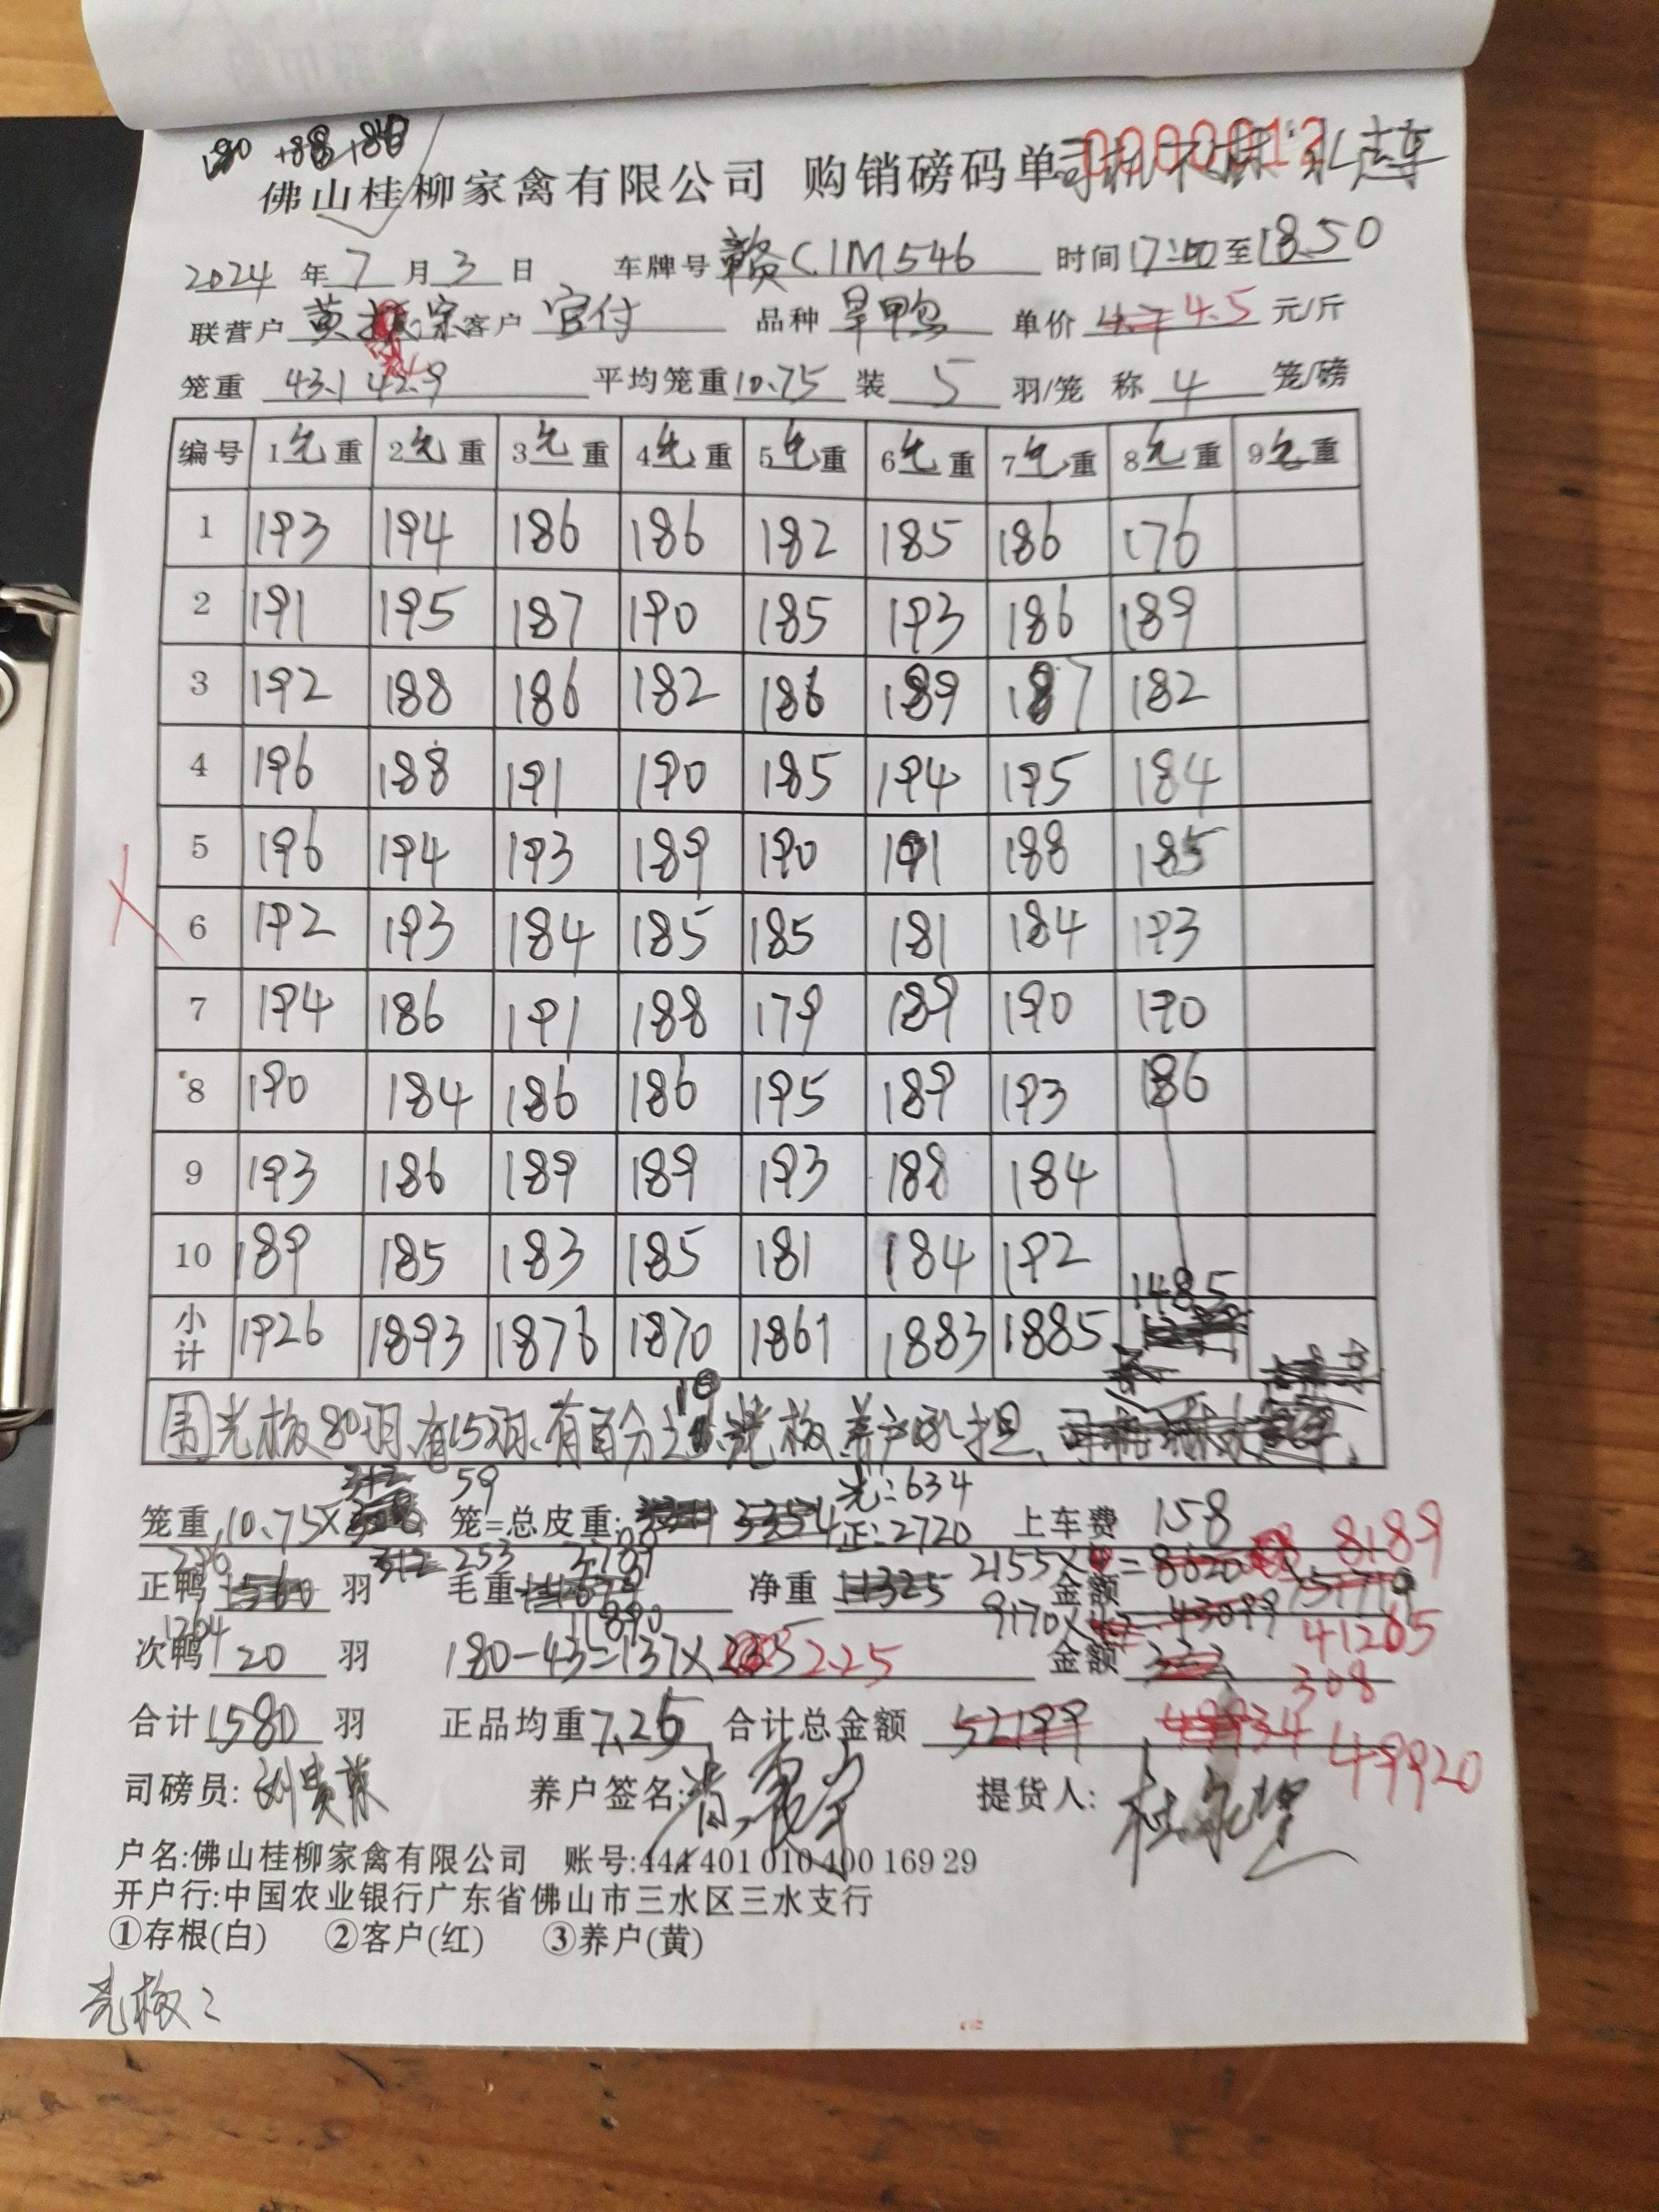 180 +88+86
佛山桂柳家禽有限公司 购销磅码单 0000012
2024 年 7 月 3 日 车牌号 赣C1M546 时间 17:00 至 18:50
联营户 黄 宗 客户 宦付 品种 旱鸭 单价 4.7 4.5 元/斤
笼重 43.1 42.9 平均笼重 10.75 装 5 羽/笼 称 4 笼/磅
编号 1 重 2 重 3 重 4 重 5 重 6 重 7 重 8 重 9 重
1 193 194 186 186 182 185 186 176
2 191 195 187 190 185 193 186 189
3 192 188 186 182 186 189 187 182
4 196 188 191 190 185 194 195 184
5 196 194 193 189 190 191 188 185
6 192 193 184 185 185 181 184 193
7 194 186 191 188 179 189 190 190
8 190 184 186 186 195 189 193 186
9 193 186 189 189 193 188 184
10 189 185 183 185 181 184 192
小计 1926 1893 1876 1870 1861 1883 1885 1485
光板80羽、有15羽、有百分之10 光板养户承担、
312 59 光:634
笼重 10.75× 笼=总皮重: 3354 正:2720 上车费 158
236 312 253 2789 2155× = 8620 8189
正鸭 1560 羽 毛重 净重 11325 金额 51719
1264 11890 9170× 43099 41265
次鸭 20 羽 180-43=137× 2.25 金额 308
合计 1580 羽 正品均重 7.26 合计总金额 52199 49934 49920
司磅员: 刘贵 养户签名: 提货人: 杜
户名:佛山桂柳家禽有限公司 账号:444 401 010 400 169 29
开户行:中国农业银行广东省佛山市三水区三水支行
①存根(白) ②客户(红) ③养户(黄)
光板: